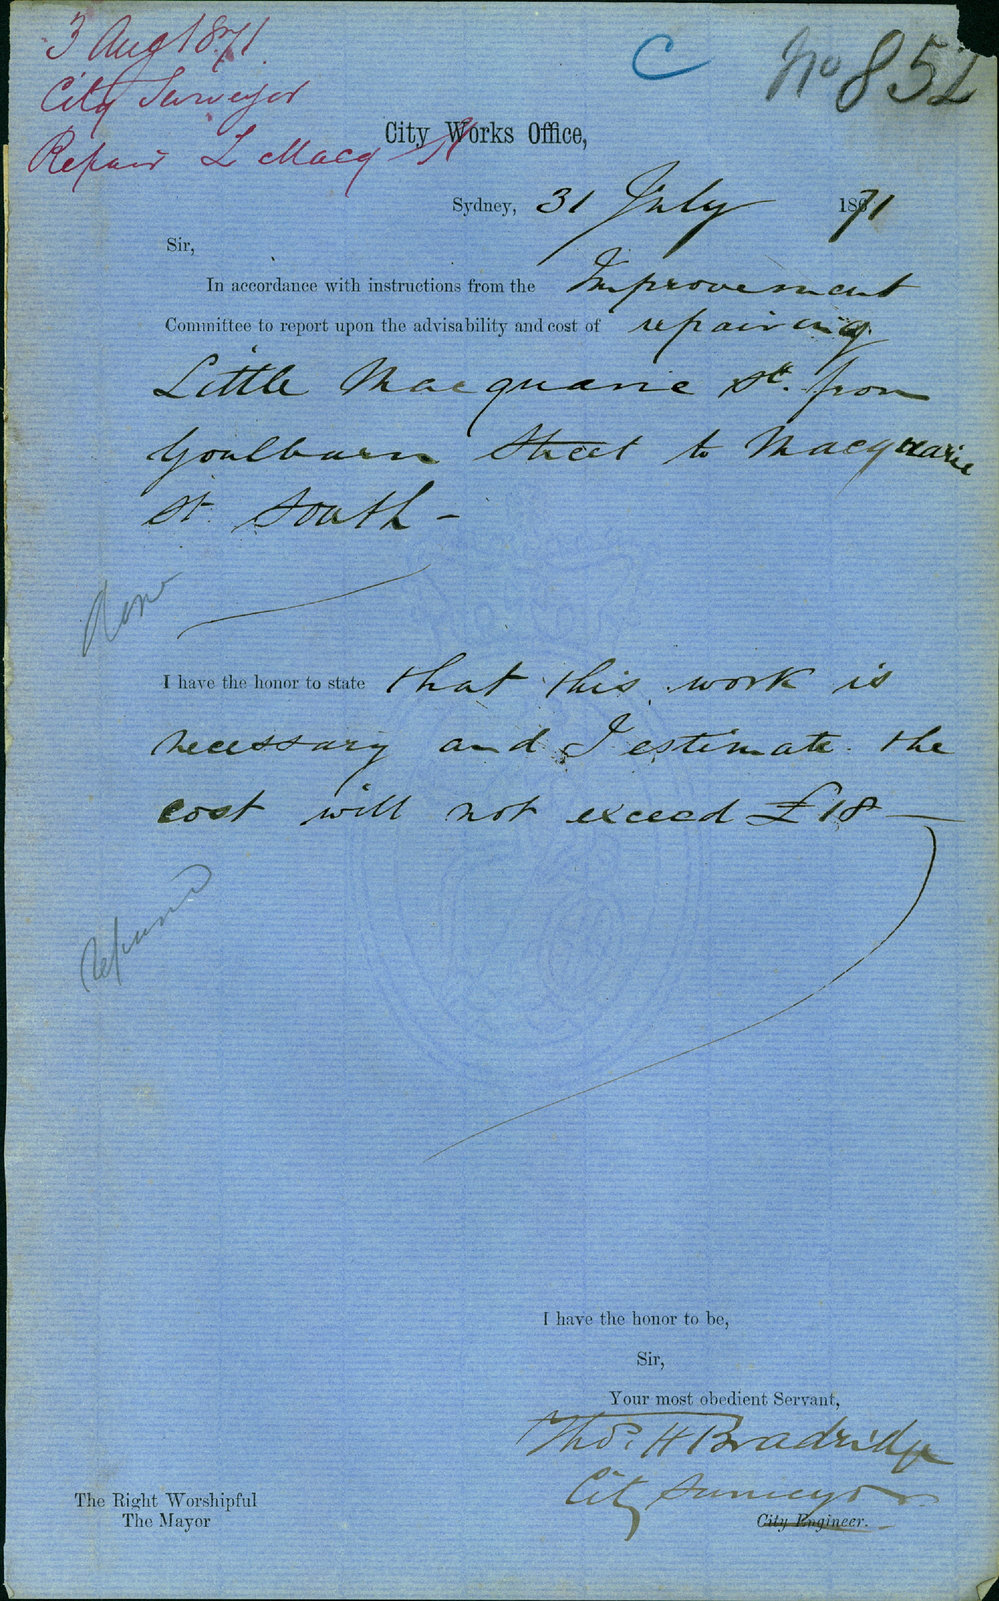 3 Aug 1871
City Surveyor
Repair L Macq St
C
No 852
City Works Office,
Sydney, 31 July 1871
Sir,
In accordance with instructions from the Improvement
Committee to report upon the advisability and cost of repairing
Little Macquarie St. from
Goulburn Street to Macquarie
St. South —
I have the honor to state that this work is
necessary and I estimate the
cost will not exceed £18 —
I have the honor to be,
Sir,
Your most obedient Servant,
Thos. H Bradridge
City Surveyor
City Engineer.
The Right Worshipful
The Mayor